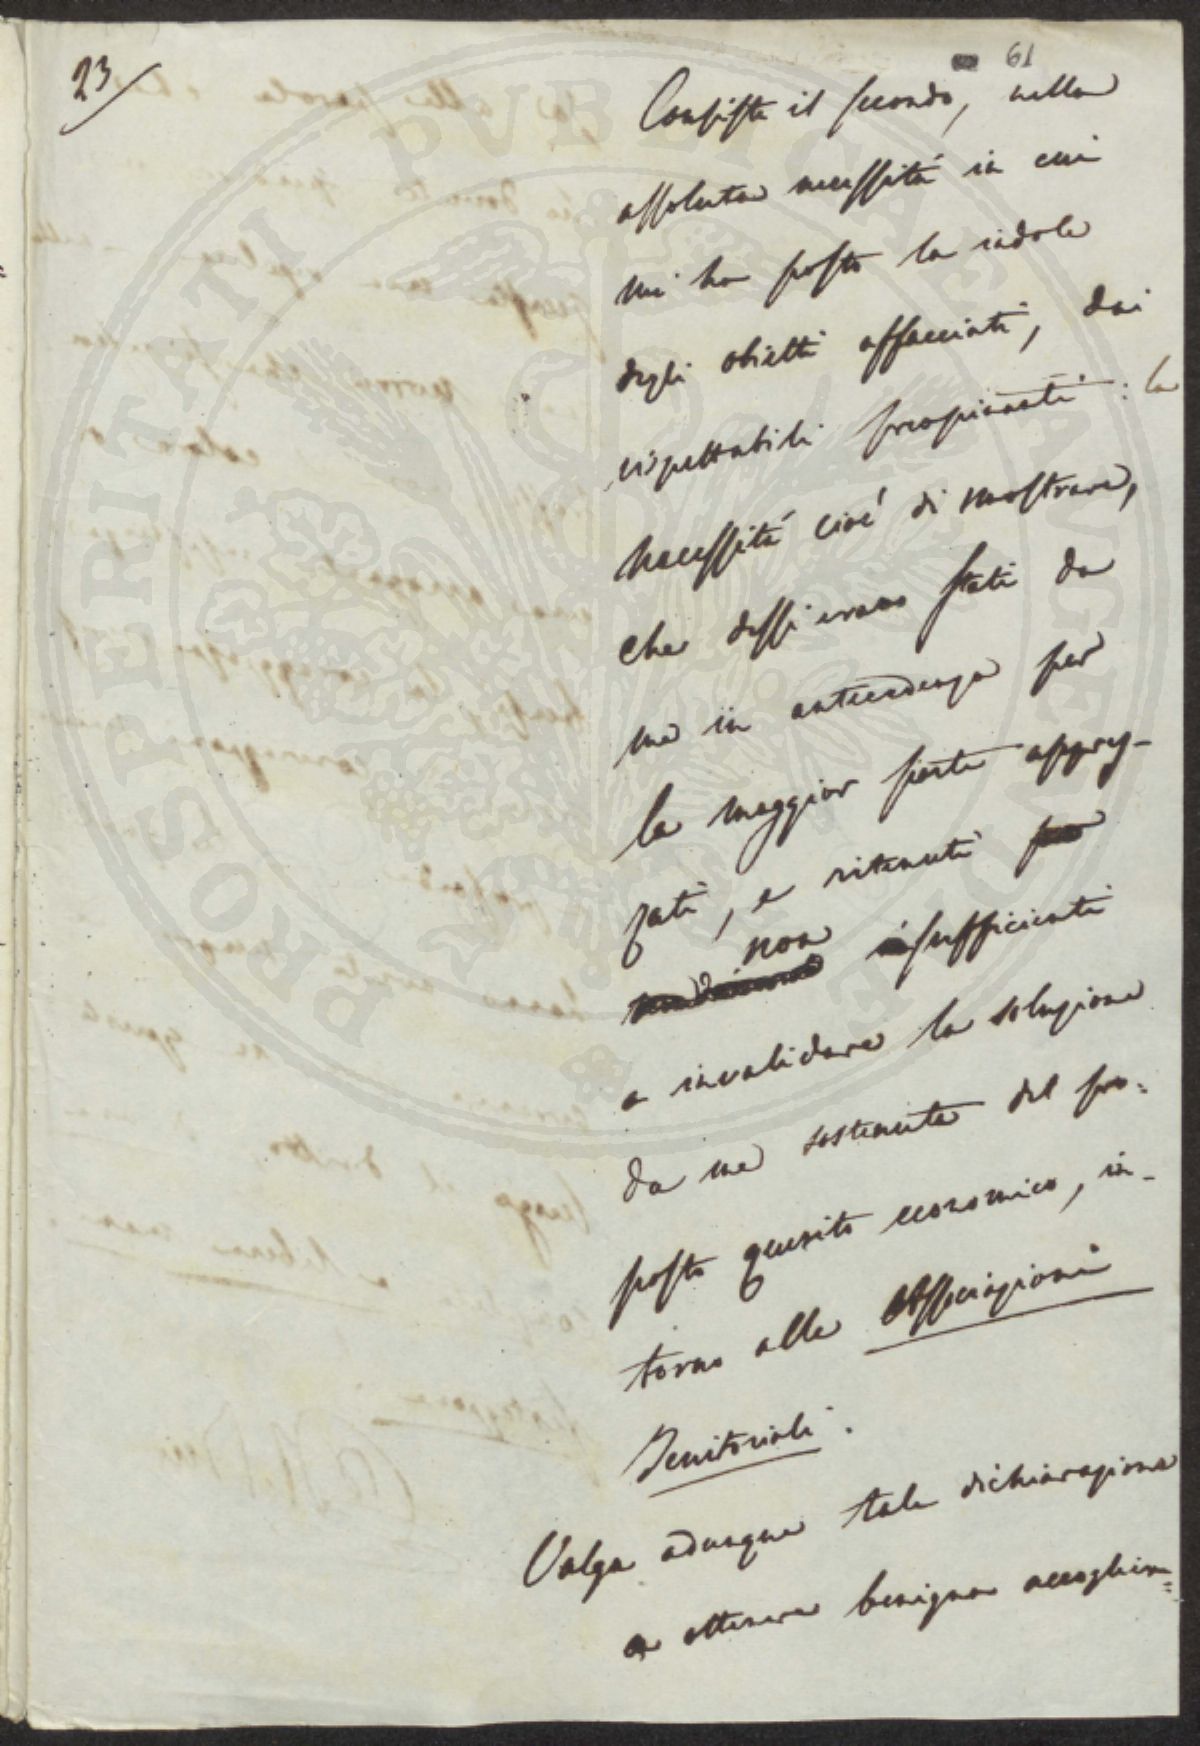 23
61
Consiste il secondo, nella
assoluta necessità in cui
mi ha posto la indole
degli obietti affacciati, dai
rispettabili preopinanti: la
necessità cioè di mostrare,
che dessi erano stati da
me in antecedenza per
la maggior parte apprez-
zati, e ritenuti
non
sufficienti
a invalidare la soluzione
da me sostenuta del pro-
posto quesito economico, in-
torno alle Associazioni
Territoriali.
Valga adunque tale dichiarazione
a ottenere benigna accoglien=
PROSPERITATI PVBLICAE AVGENDAE